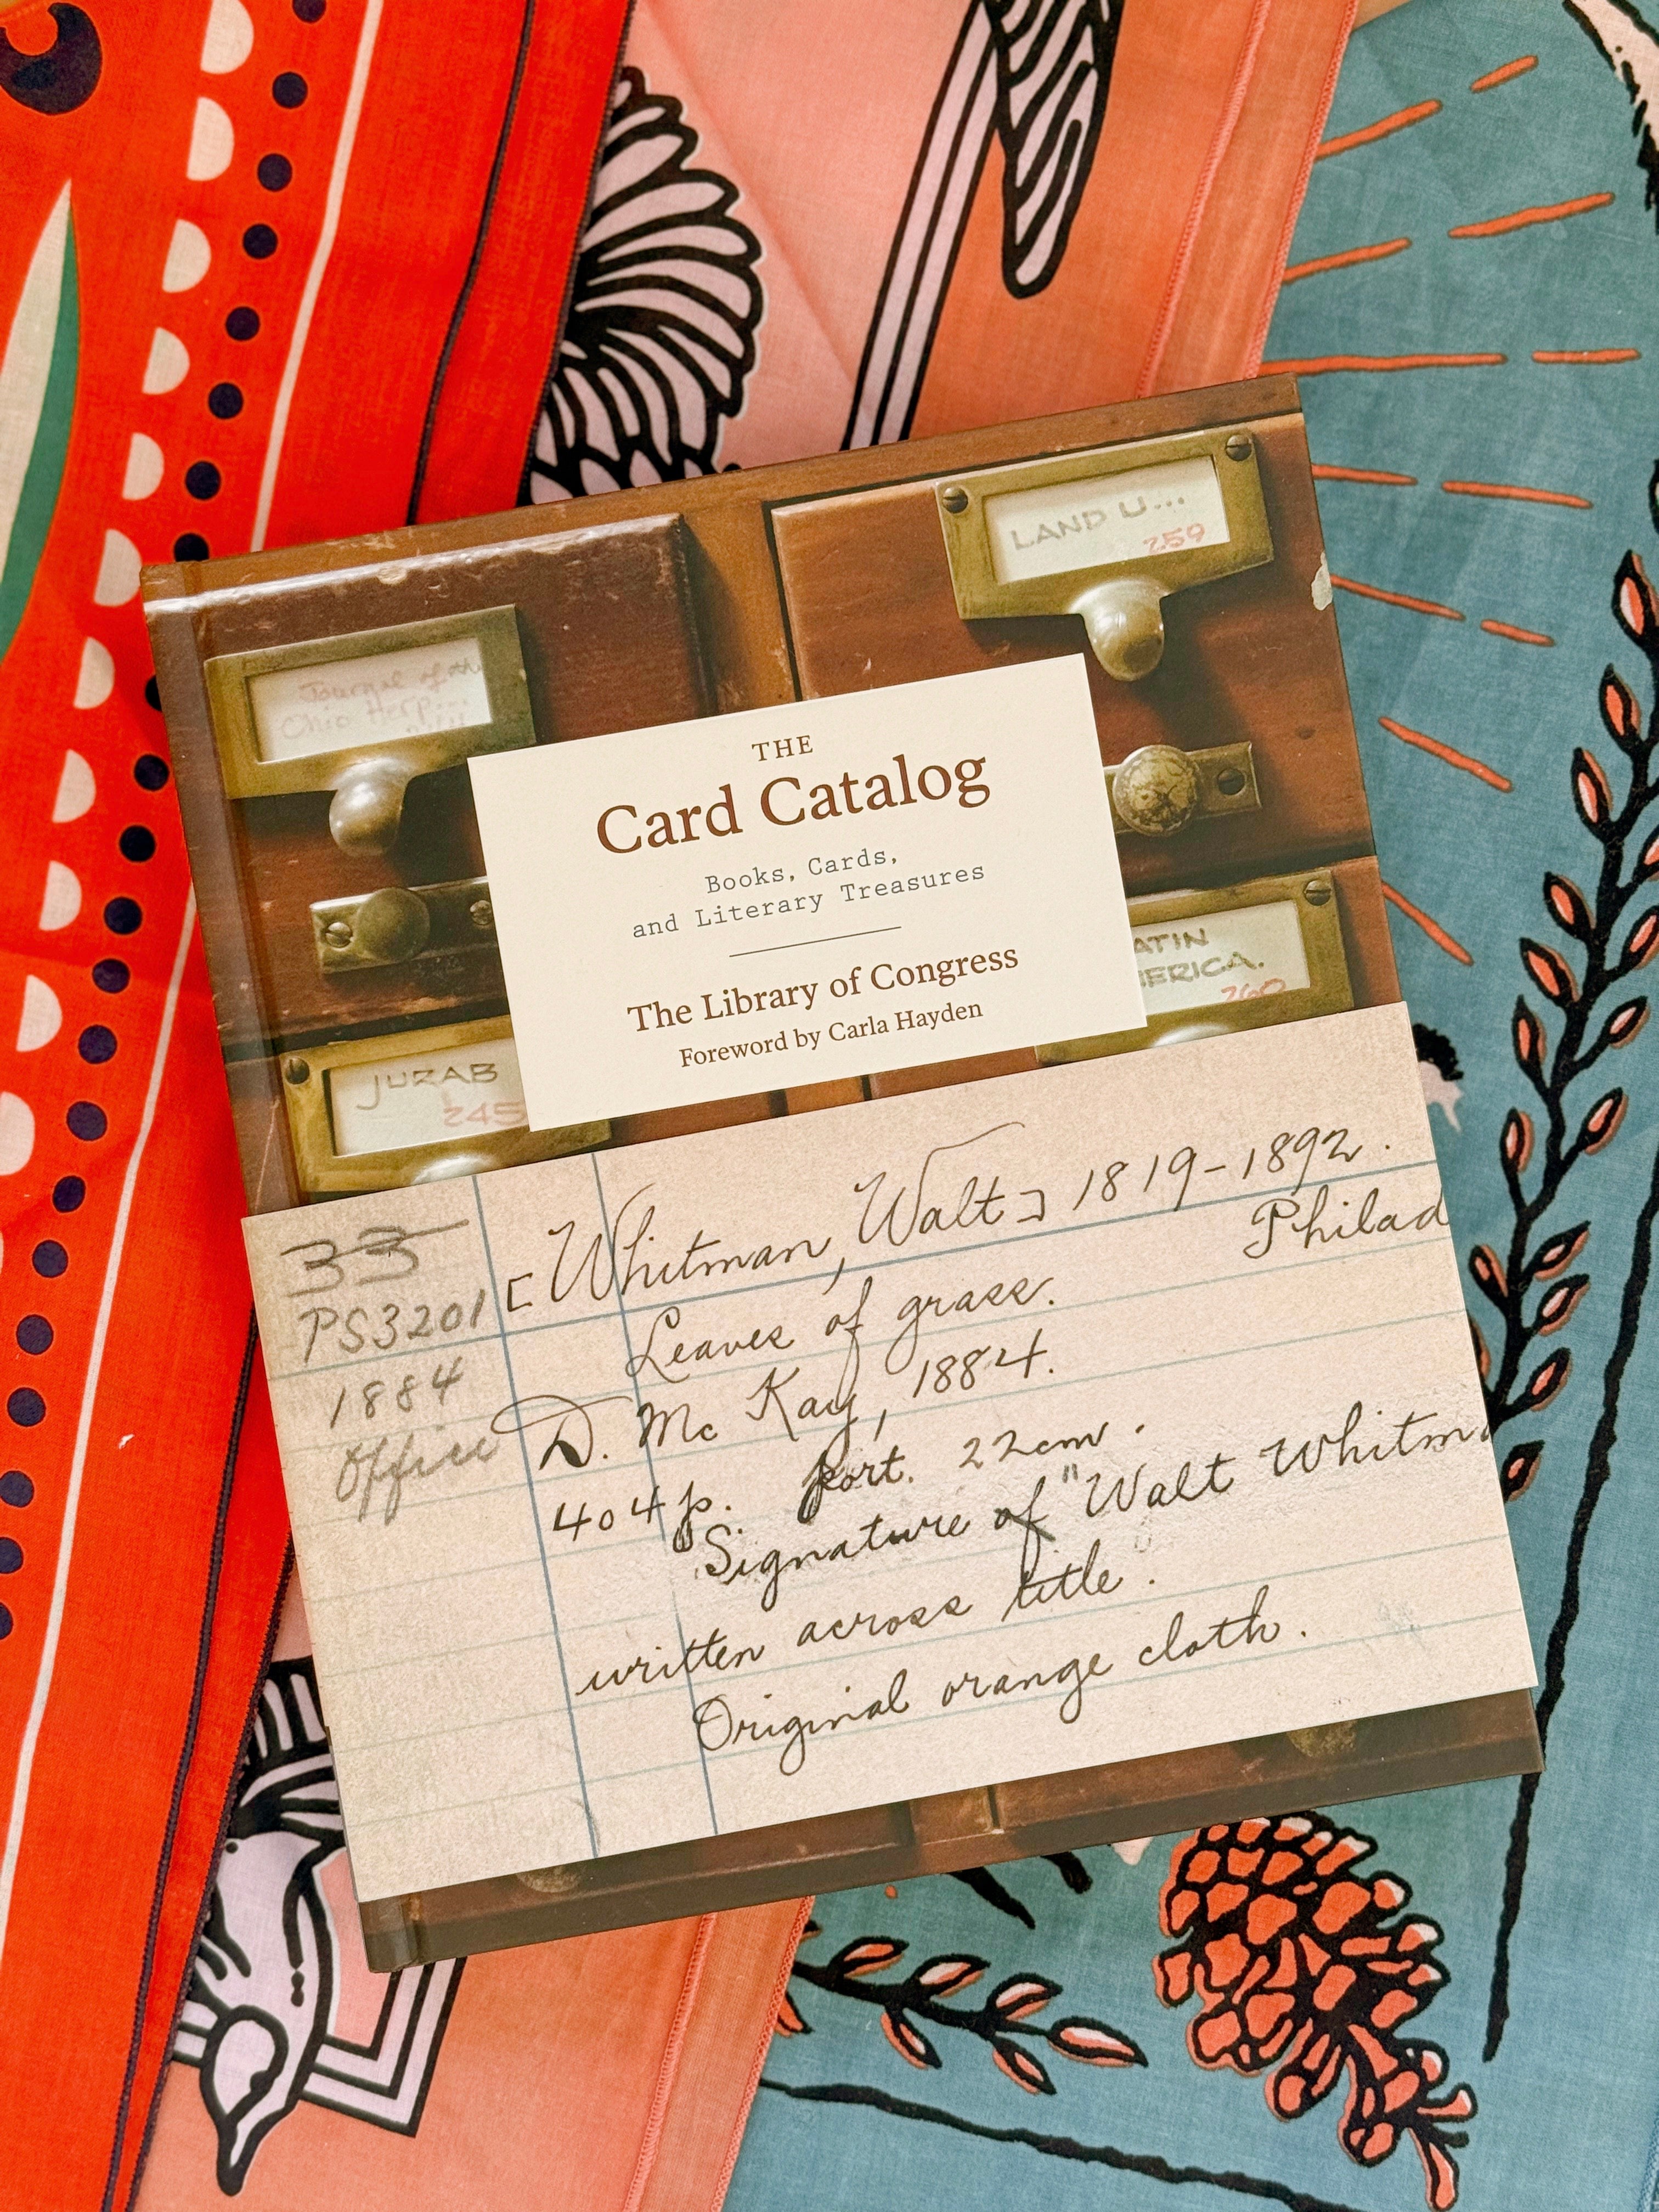 LAND U...
259
Journal of the
Ohio Herp...
THE
Card Catalog
Books, Cards,
and Literary Treasures
The Library of Congress
Foreword by Carla Hayden
ATIN
ERICA.
260
JURAB
245
33
[Whitman, Walt] 1819-1892.
PS3201
Leaves of grass. Philad
1884
D. Mc Kay, 1884.
Office
404 p. port. 22cm.
Signature of "Walt Whitma
written across title".
Original orange cloth.